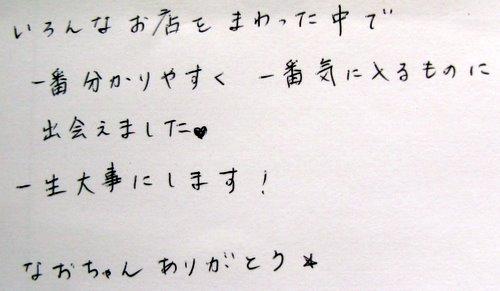 いろんなお店をまわった中で
一番分かりやすく 一番気に入るものに
出会えました♥
一生大事にします!
なおちゃんありがとう★